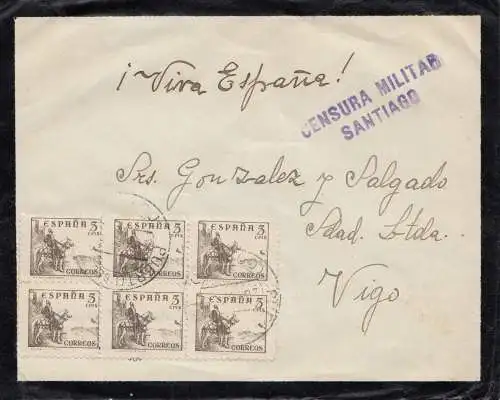 ¡Viva España!
CENSURA MILITAR
SANTIAGO
Srs. Gonzalez y Salgado
Sdad. Ltda.
Vigo
ESPAÑA 5 CTS
CORREOS
ESPAÑA 5 CTS
CORREOS
ESPAÑA 5 CTS
CORREOS
ESPAÑA 5 CTS
CORREOS
ESPAÑA 5 CTS
CORREOS
ESPAÑA 5 CTS
CORREOS